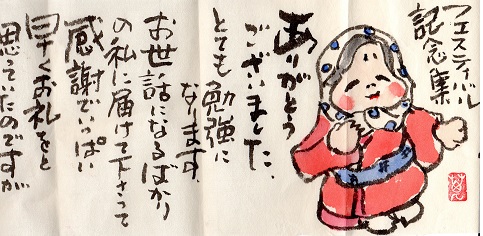 フェスティバル
記念集
ありがとう
ございました、
とても勉強に
なります、
お世話になるばかり
の私に届けて下さって
感謝でいっぱい
早くお礼をと
思っていたのですが